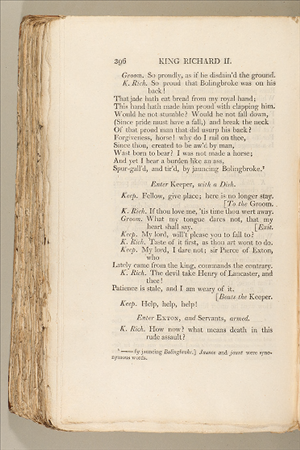 396 KING RICHARD II.
Groom. So proudly, as if he disdain'd the ground.
K. Rich. So proud that Bolingbroke was on his
back!
That jade hath eat bread from my royal hand;
This hand hath made him proud with clapping him.
Would he not stumble? Would he not fall down,
(Since pride must have a fall,) and break the neck
Of that proud man that did usurp his back?
Forgiveness, horse! why do I rail on thee,
Since thou, created to be aw'd by man,
Wast born to bear? I was not made a horse;
And yet I bear a burden like an ass,
Spur-gall'd, and tir'd, by jauncing Bolingbroke.⁹
Enter Keeper, with a Dish.
Keep. Fellow, give place; here is no longer stay.
[To the Groom.
K. Rich. If thou love me, 'tis time thou wert away.
Groom. What my tongue dares not, that my
heart shall say. [Exit.
Keep. My lord, will't please you to fall to?
K. Rich. Taste of it first, as thou art wont to do.
Keep. My lord, I dare not; sir Pierce of Exton,
who
Lately came from the king, commands the contrary.
K. Rich. The devil take Henry of Lancaster, and
thee!
Patience is stale, and I am weary of it.
[Beats the Keeper.
Keep. Help, help, help!
Enter EXTON, and Servants, armed.
K. Rich. How now? what means death in this
rude assault?
⁹ —— by jauncing Bolingbroke.] Jaunce and jaunt were syno-
nymous words.